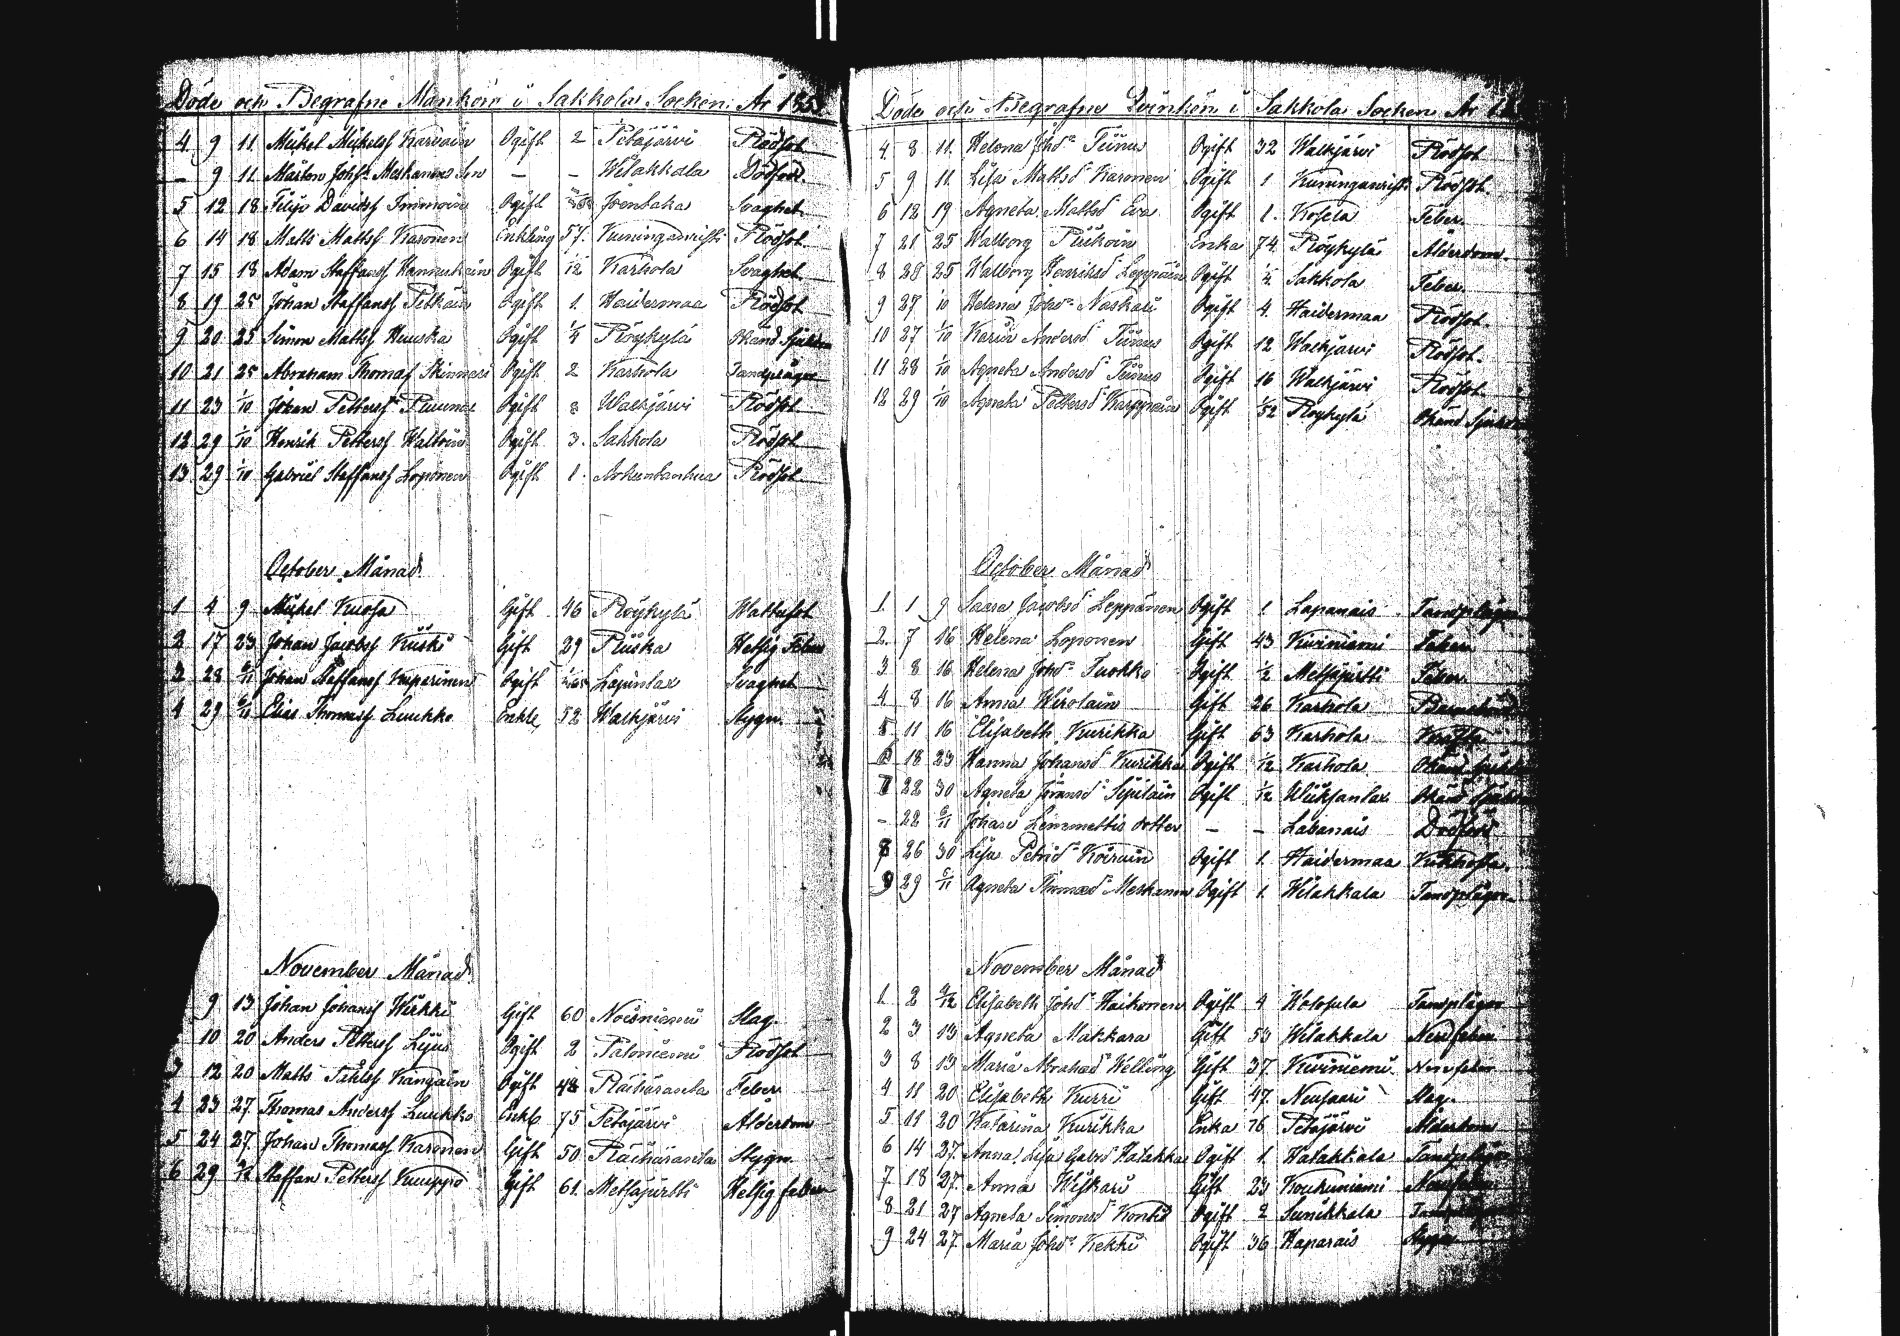 Döde och Begrafne Mankön i Sakkola Socken År 185
4 9 11 Mickel Mickelss Karvain Ogift 2 Petäjärvi Rödsot
– 9 11 Mårten Johss Meskanens Son – – Wilakkala Dödföd.
5 12 18 Filip Davidss Immoin Ogift Joentaka Svaghet
6 14 18 Matts Mattss Karonen Enkling 57 Kuninganristi Rödsot
7 15 18 Adam Staffanss Hannukain Ogift 1/12 Karhola Svaghet
8 19 25 Johan Staffanss Pitkäin Ogift 1. Haidermaa Rödsot
9 20 25 Simon Mattss Huuska Ogift 1/4 Röykylä Okänd Sjukdom
10 21 25 Abraham Thomass Skinnari Ogift 2 Karhola Tandplågor
11 23 1/10 Johan Petterss Ogift Walkjärvi Rödsot
12 29 1/10 Henrik Petterss Ogift 3. Sakkola Rödsot
13 29 1/10 Gabriel Staffanss Loponen Ogift 1. Rödsot
October Månad
1 4 9 Mickel Kuosa Gift 46 Röykylä Wattusot
2 17 23 Johan Jacobss Kiiski Gift 29 Riiska Hetsig Feber
3 28 6/11 Johan Staffanss Kuparinen Ogift Lapinlax Svaghet
4 29 6/11 Elias Thomass Luukko Enkl. 52 Walkjärvi Stygn.
November Månad
9 13 Johan Johanss Wirkki Gift 60 Noisniemi Slag.
10 20 Anders Petterss Ogift 2 Paloniemi Rödsot
3 12 20 Matts Påhlss Kangain Ogift 48 Räihäranta Feber
4 23 27. Thomas Anderss Luukko Enkl. 75 Petäjärvi Ålderdom
5 24 27. Johan Thomass Karonen Gift 50 Räihäranta Stygn.
6 29 4/12 Staffan Petterss Kuuppo Gift 61. Metsäpirtti Hetsig feber
Döde och Begrafne Qvinkön i Sakkola Socken År 18
4. 8 11. Helena Johsdr Tiinus Ogift 32 Walkjärvi Rödsot
5 9 11. Lisa Mattsdr Karonen Ogift 1 Kuninganristi Rödsot
6 12 19 Agneta Mattsdr Eva Ogift 1. Kosela Feber.
7 21 25 Walborg Enka 74. Röykylä Ålderdom.
8 28 25 Walborg Henriksdr Leppäin Ogift 1/4 Sakkola Feber.
9 27 1/10 Helena Johsdr Naskali Ogift 4. Haidermaa Rödsot.
10 27 1/10 Karin Andersdr Tiinus Ogift 12 Walkjärvi Rödsot.
11 28 1/10 Agneta Andersdr Tiinus Ogift 16 Walkjärvi Rödsot
12 29 1/10 Agneta Pettersdr Karppain Ogift 1/52 Röykylä Okänd Sjukdom
October Månad
1. 1 9 Saara Jacobsdr Leppänen Ogift 1. Lapanais Tandplågor
2. 7 16 Helena Loponen Gift 43 Kiviniemi
3 8 16 Helena Johsdr Tuokko Ogift 1/2 Metsäpirtti Feber
4. 8 16 Anna Wirolain Gift 26 Karhola Barnsbörd
5 11 16 Elisabeth Kurikka Gift 63 Karhola
6 18 23 Hanna Johansdr Kurikka Ogift 1/12 Karhola Okänd Sjukdom
7 22 30 Agneta Göransdr Ogift 1/12 Wiiksanlax Okänd Sjukdom
– 22 6/11 Johan Lemmettis dotter – – Labanais Dödföd
8 26 30 Lisa Petrid. Koirain Ogift 1. Haidermaa Kikhosta.
9 29 6/11 Agneta Thomasdr Meskanen Ogift 1. Wilakkala Tandplågor.
November Månad
1. 2 4/12 Elisabeth Johsdr Haikonen Ogift 4 Tandplågor
2 3 13 Agneta Makkara Gift 53 Wilakkala Nervfeber
3 8 13 Maria Abrahasdr Helling Gift 37. Kiviniemi Nervfeber
4 11 20 Elisabeth Kurri Gift 47. Neusaari Slag.
5 11 20 Katarina Kurikka Enka 76 Petäjärvi Ålderdom
6 14 27. Anna Lisa Gabrsdr Hatakka Ogift 1. Hatakkala Tandplågor
7. 18 27. Anna Wiskari Gift 23 Koukuniemi Nervfeber
8 21 27 Agneta Simonsdr Kontio Ogift 2 Sunikkala
9 24 27. Maria Johsdr Kekki Ogift 36 Haparais Stygn